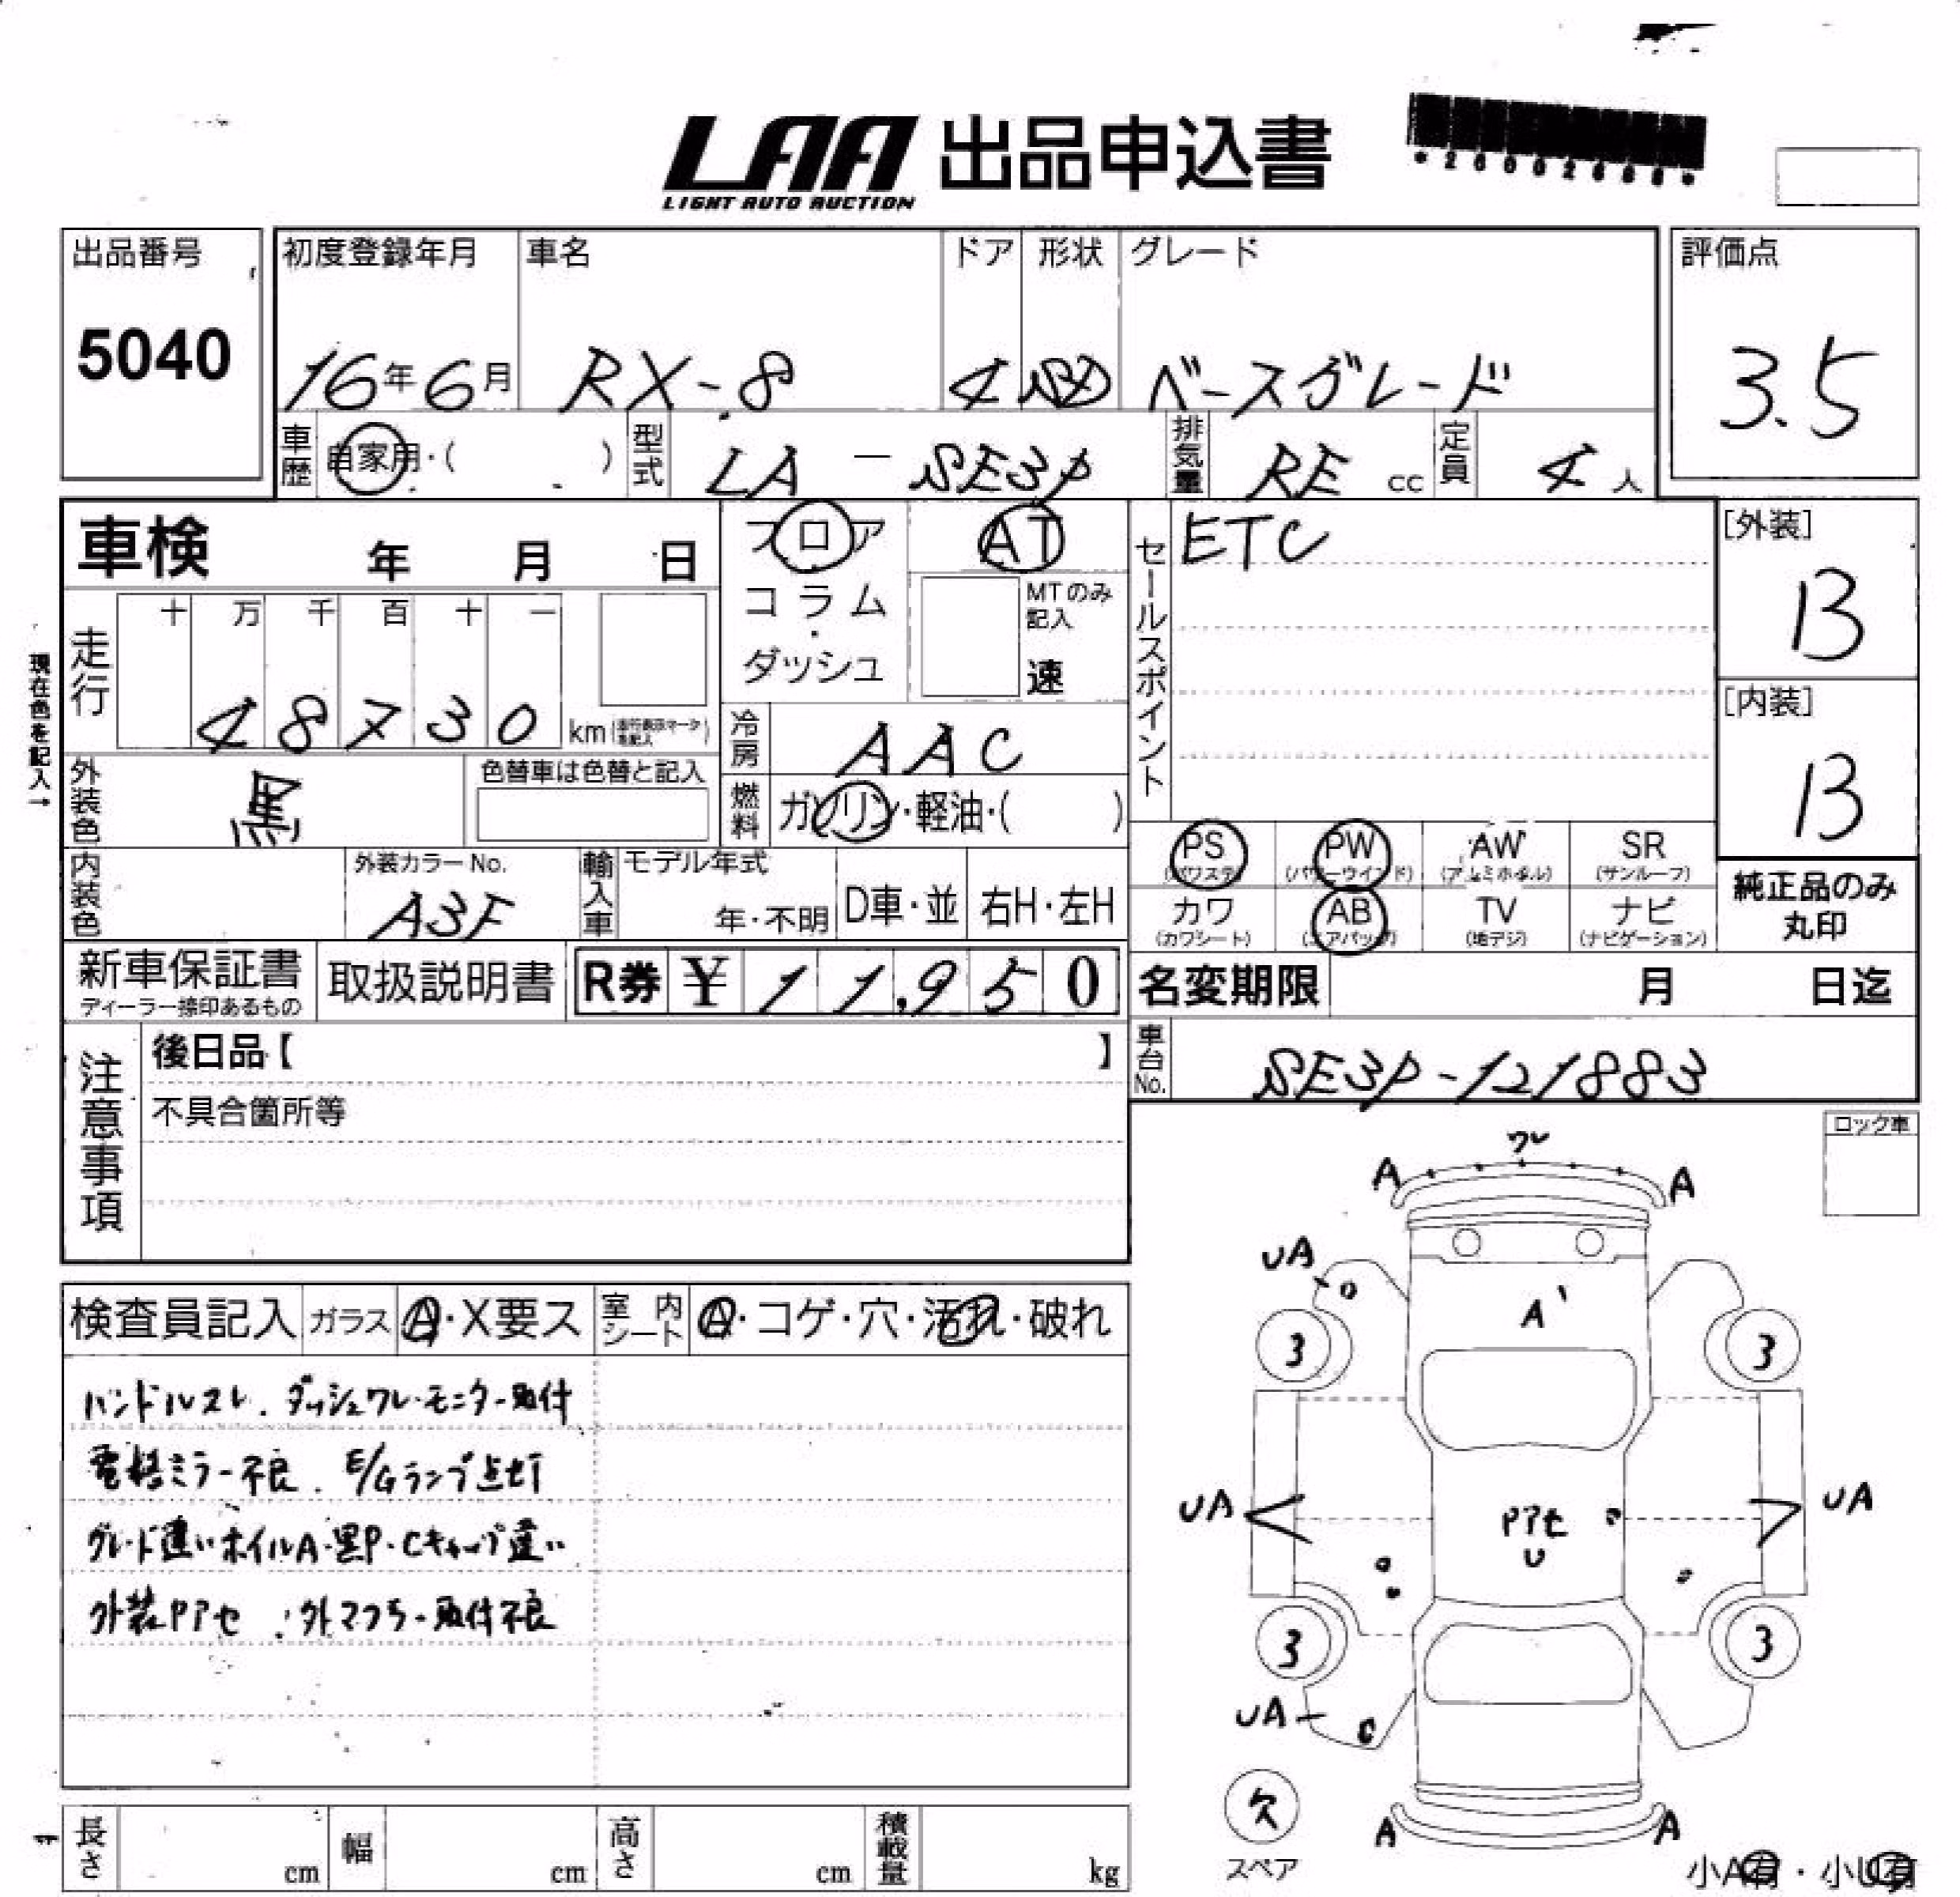 LAA 出品申込書
LIGHT AUTO AUCTION
出品番号
5040
初度登録年月
16年6月
車名
RX-8
ドア
4
形状
SD
グレード
ベースグレード
評価点
3.5
車歴
自家用・( )
型式
LA - SE3P
排気量
RE cc
定員
4 人
車検 年 月 日
フロア
コラム
ダッシュ
AT
MTのみ記入
速
セールスポイント
ETC
[外装]
B
[内装]
B
現在色を記入→
走行
十 万 千 百 十 一
48730 km
冷房
AAC
外装色
黒
色替車は色替と記入
燃料
ガソリン・軽油・( )
PS (パワステ)
PW (パワーウインド)
AW (アルミホイル)
SR (サンルーフ)
カワ (カワシート)
AB (エアバッグ)
TV (地デジ)
ナビ (ナビゲーション)
純正品のみ
丸印
内装色
外装カラーNo.
A3F
輸入車
モデル年式
年・不明
D車・並
右H・左H
新車保証書
ディーラー捺印あるもの
取扱説明書
R券 ¥ 11,950
名変期限 月 日迄
注意事項
後日品【 】
不具合箇所等
車台No.
SE3P-121883
ロック車
検査員記入
ガラス
A・X要ス
室内シート
A・コゲ・穴・汚れ・破れ
ハンドルスレ.ダッシュワレ・モニター取付
電格ミラー不良.E/Gランプ点灯
グレード違いホイルA・黒P・Cキャップ違い
外装Pアセ 外マフラー取付不良
ワレ
A A
UA
A'
3 3
UA
Pアセ
U
UA
3 3
UA
欠
スペア
A A
小A有・小U有
長さ cm
幅 cm
高さ cm
積載量 kg